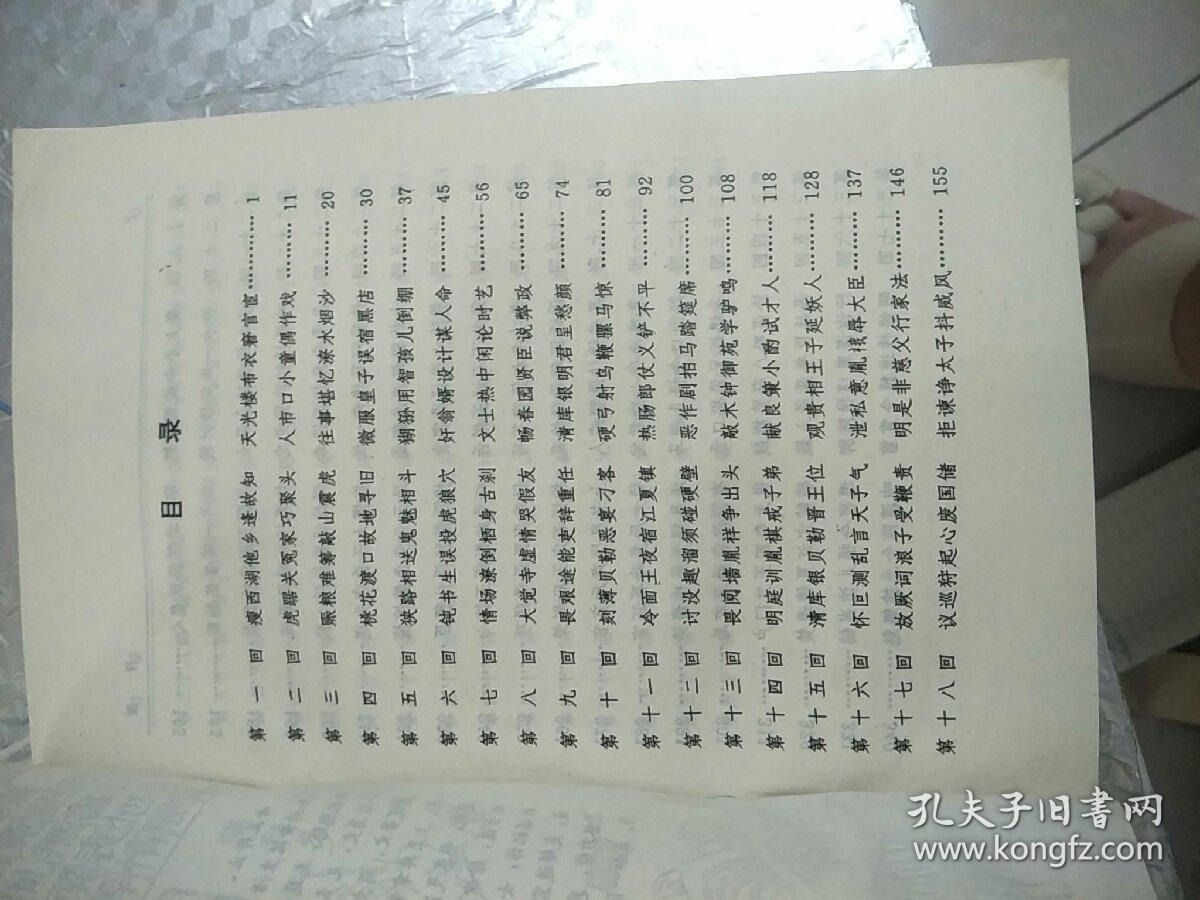 目 录
第 一 回 瘦西湖他乡逢故知 天光楼布衣窘官宦………… 1
第 二 回 虎踞关冤家巧聚头 人市口小童偶作戏……… 11
第 三 回 赈粮难筹敲山震虎 往事堪忆漆水烟沙……… 20
第 四 回 桃花渡口故地寻旧 微服皇子误宿黑店……… 30
第 五 回 狭路相送鬼魅相斗 猢狲用智孩儿倒绷……… 37
第 六 回 钝书生误投虎狼穴 奸翁婿设计谋人命……… 45
第 七 回 情场潦倒栖身古刹 文士热中闲论时艺……… 56
第 八 回 大觉寺虚情哭假友 畅春园贤臣说弊政……… 65
第 九 回 畏艰途能吏辞重任 清库银明君呈愁颜……… 74
第 十 回 刻薄贝勒恶宴刁客 硬弓射鸟鞭骡马惊……… 81
第十一回 冷面王夜宿江夏镇 热肠郎仗义铲不平……… 92
第十二回 讨没趣溜须碰硬壁 恶作剧拍马踏筵席……… 100
第十三回 畏阋墙胤祥争出头 敲木钟御苑学驴鸣……… 108
第十四回 明庭训胤棋戒子弟 献良策小酌试才人……… 118
第十五回 清库银贝勒晋王位 观贵相王子延妖人……… 128
第十六回 怀叵测乱言天子气 泄私意胤禩辱大臣……… 137
第十七回 放厥词浪子受鞭责 明是非慈父行家法……… 146
第十八回 议巡狩起心废国储 拒谏诤太子抖威风……… 155
孔夫子旧书网
www.kongfz.com